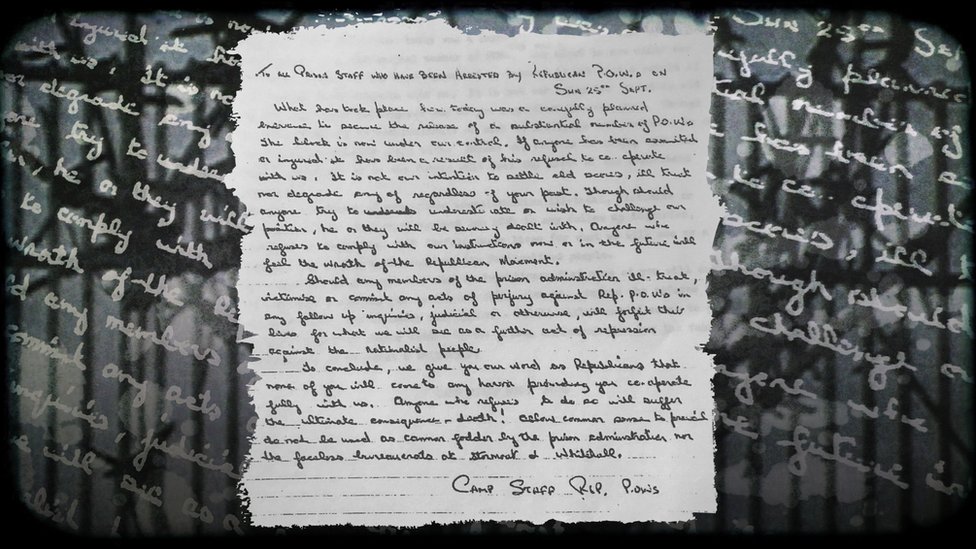 TO ALL PRISON STAFF WHO HAVE BEEN ARRESTED BY REPUBLICAN P.O.W.s ON
SUN 25TH SEPT.
What has took place here today was a carefully planned
exercise to secure the release of a substantial number of P.O.W.s
The block is now under our control. If anyone has been assaulted
or injured it have been a result of his refusal to co. operate
with us. It is not our intention to settle old scores, ill treat
nor degrade any of regardless of your past. Though should
anyone try to underestimate or wish to challenge our
position, he or they will be severly dealt with. Anyone who
refuses to comply with our instructions now or in the future will
feel the wrath of the Republican Movement.
Should any members of the prison administration ill-treat,
victimise or commit any acts of perjury against Rep. P.O.W.s in
any follow up inquiries, judicial or otherwise, will forfeit their
lives for what we will see as a further act of repression
against the nationalist people.
To conclude, we give you our word as Republicans that
none of you will come to any harm providing you co. operate
fully with us. Anyone who refuses to do so will suffer
the ultimate consequence - death! Allow common sense to prevail
do not be used as cannon fodder by the prison administration nor
the faceless bureaucrats at Stormont or Whitehall.
CAMP STAFF REP. P.O.W'S